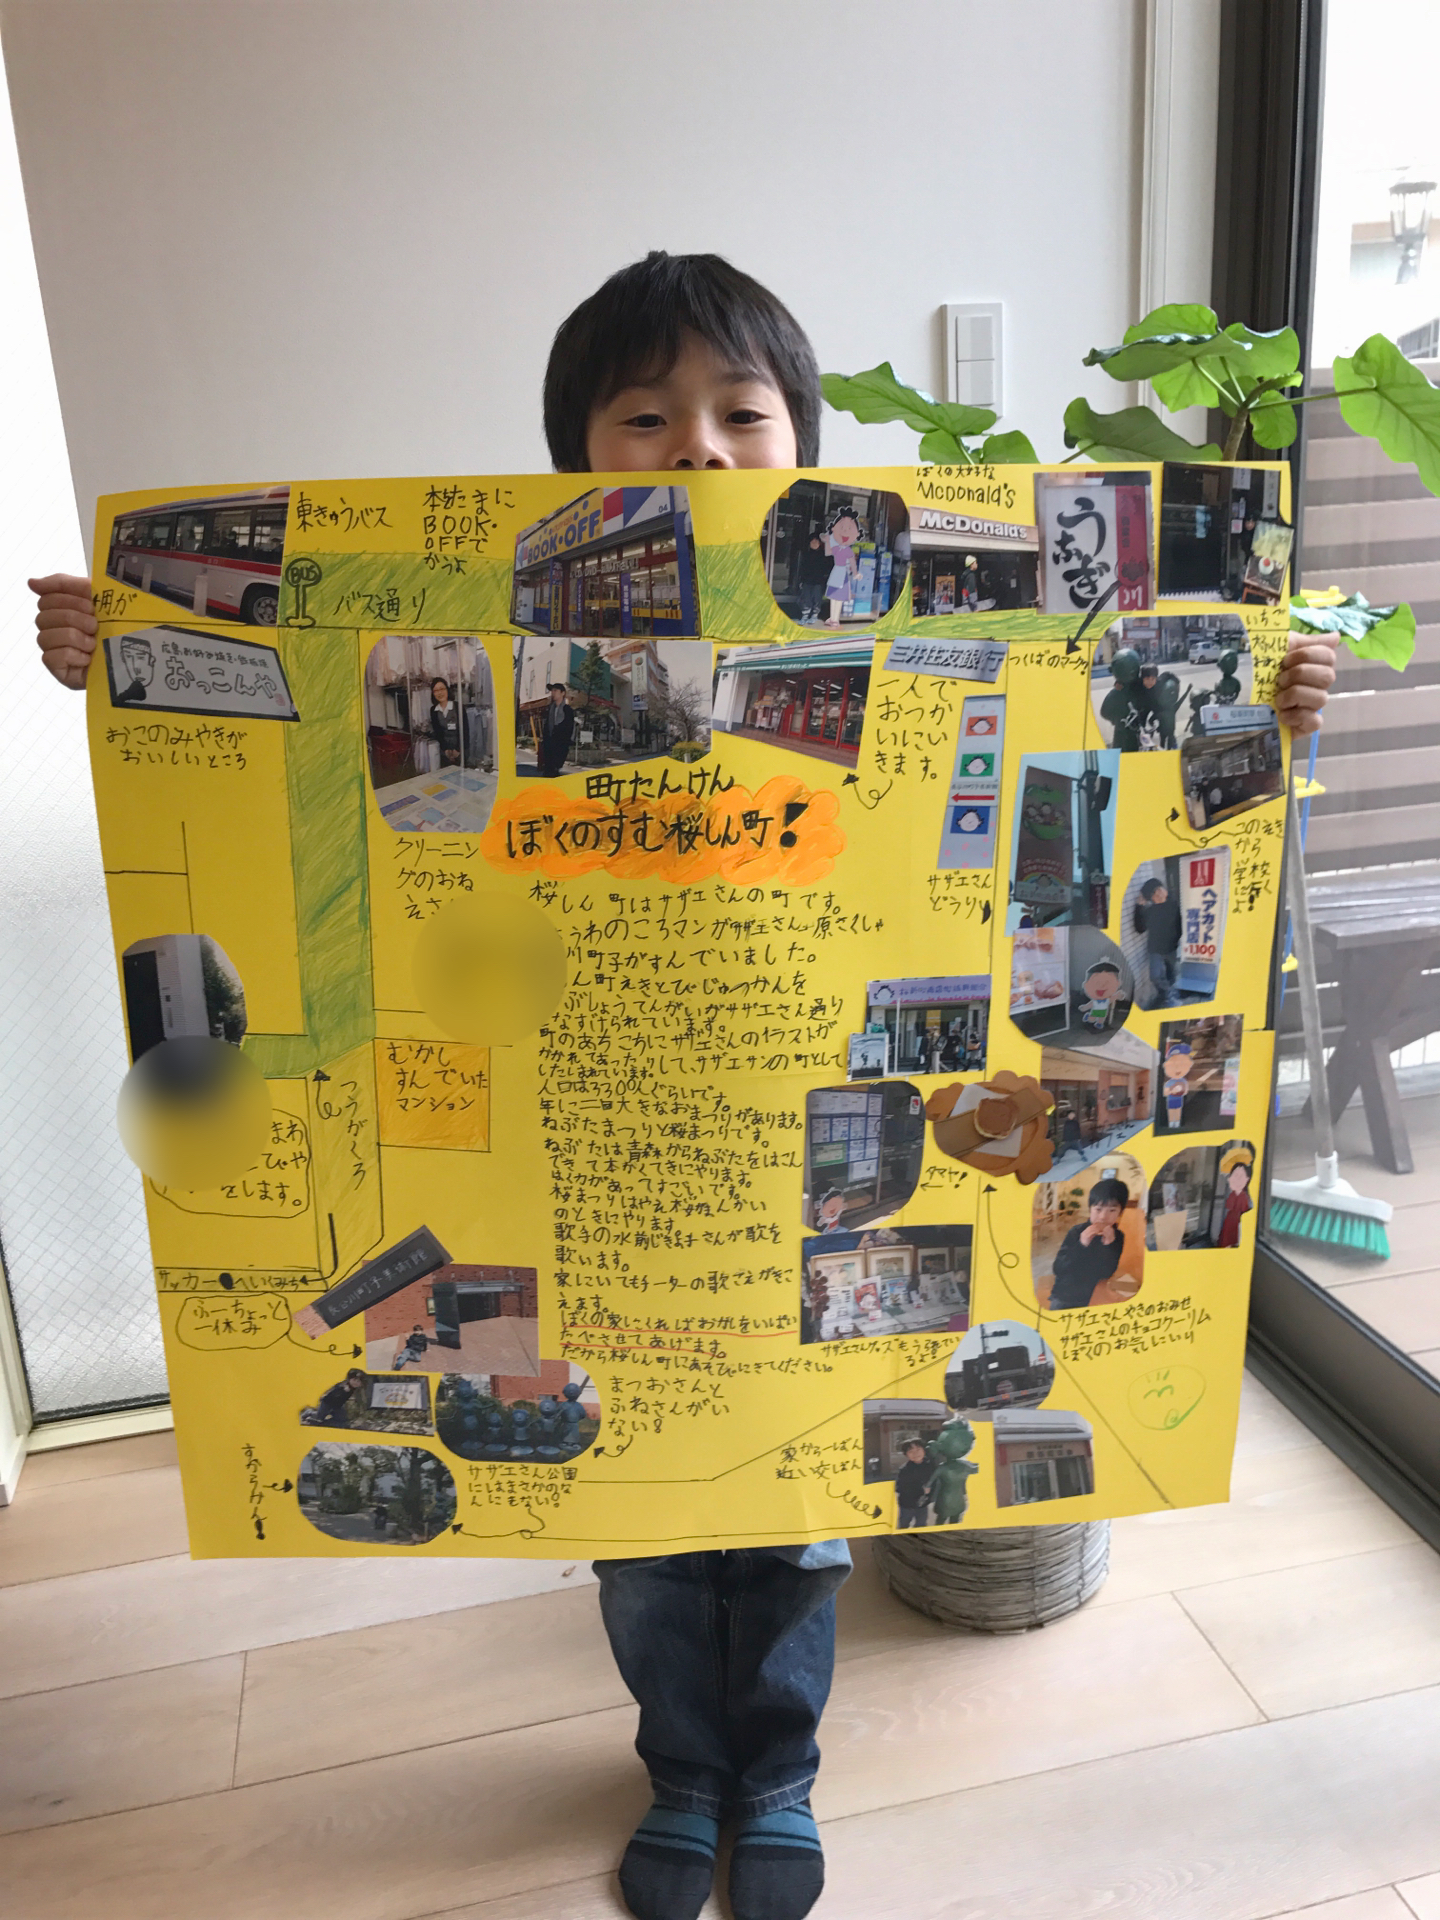 東きゅうバス
本をたまに
BOOK・
OFFで
かうよ
BOOK・OFF
ぼくの大好な
McDonald's
McDonald's
うなぎ
川
BUS
バス通り
用が
おっこんや
おこのみやきが
おいしいところ
三井住友銀行
一人で
おつか
いにい
きます。
つくばのマーク?
いちご
町たんけん
ぼくのすむ桜しん町!
クリーニン
グのおね
えさ
サザエさん
どうり
このえき
から
学校
に行く
よ
ヘアカット
専門店
¥1,100
桜しん町はサザエさんの町です。
ょうわのころマンガサザエさん原さくしゃ
川町子がすんでいました。
ん町えきとびじゅつかんを
ぶしょうてんがいがサザエさん通り
なずけられています。
町のあちこちにサザエさんのイラストが
かかれてあったりして、サザエサンの町として
したしまれています。
人口は3300人ぐらいです。
年に二回大きなおまつりがあります。
ねぶたまつりと桜まつりです。
ねぶたは青森からねぶたをはこん
できて本かくてきにやります。
はく力があってすごいです。
桜まつりはやえ桜がまんかい
のときにやります
歌手の水前じきよ子さんが歌を
歌います。
家にいてもチーターの歌ごえがきこ
えます。
ぼくの家にくればおかしをいっぱい
たべさせてあげます。
だから桜しん町にあそびにきてください。
むかし
すんでいた
マンション
つうがくろ
まわ
をします。
サッカーへいくみち
ふーちょっと
一休み
長谷川町子美術館
タマや!
サザエさんやきのおみせ
サザエさんのチョコクーリム
ぼくのお気しにいり
サザエさんグッズもう売ってい
るよ!
まつおさんと
ふねさんがい
ない?
サザエさん公園
にはまさかのな
んにもない!
家から一ばん
近い交ばん